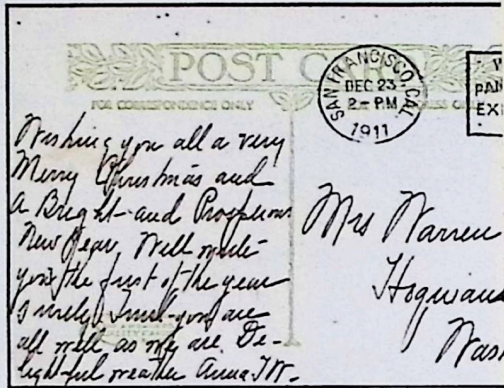 POST CAR
FOR CORRESPONDENCE ONLY
SAN FRANCISCO, CAL.
DEC 23
2 - PM
1911
PAN
EX
Wishing you all a very
Merry Christmas and
a Bright and Prosperous
New Year. Will write
you the first of the year
surely. Trust you are
all well as we are De-
lightful weather Anna T.W.
Mrs Warren
Hoquiam
Wash